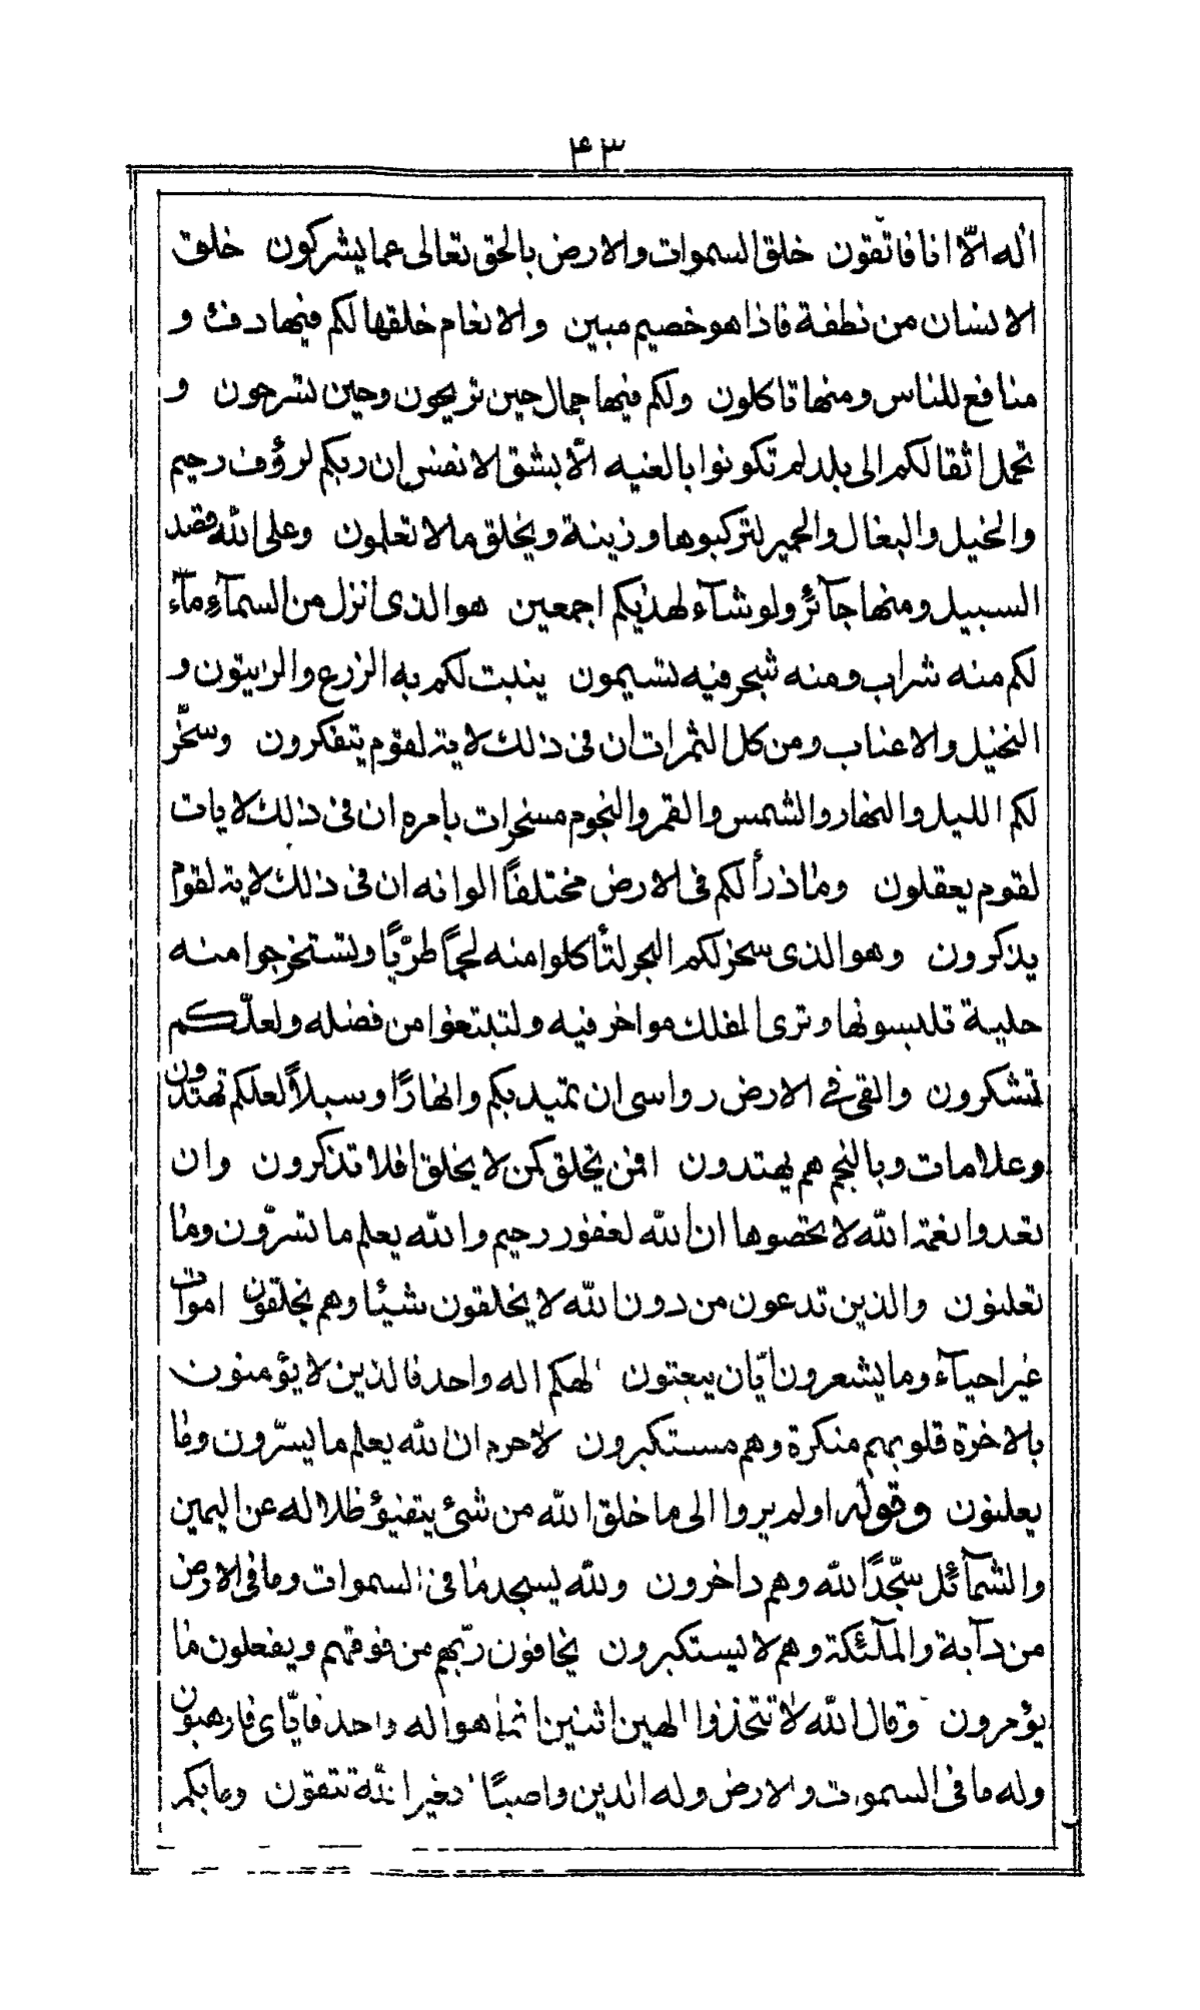 ۴۳
اله الّا انا فاتقون خلق السموات والارض بالحق تعالى عما يشركون خلق
الانسان من نطفة فاذا هو خصيم مبين والانعام خلقها لكم فيها دفئ و
منافع للناس ومنها تاكلون ولكم فيها جمال حين تريحون وحين تسرحون و
تحمل اثقالكم الى بلد لم تكونوا بالغيه الّا بشق الانفس ان ربكم لرؤف رحيم
والخيل والبغال والحمير لتركبوها وزينة ويخلق ما لا تعلمون وعلى الله قصد
السبيل ومنها جآئر ولو شآء لهديكم اجمعين هو الذى انزل من السمآء مآء
لكم منه شراب ومنه شجر فيه تسيمون ينبت لكم به الزرع والزيتون و
النخيل والاعناب ومن كل الثمرات ان فى ذلك لاية لقوم يتفكرون وسخّر
لكم الليل والنهار والشمس والقمر والنجوم مسخرات بامره ان فى ذلك لايات
لقوم يعقلون وما ذرأ لكم فى الارض مختلفًا الوانه ان فى ذلك لاية لقوم
يذكرون وهو الذى سخر لكم البحر لتأكلوا منه لحمًا طريًّا وتستخرجوا منه
حلية تلبسونها وترى الفلك مواخر فيه ولتبتغوا من فضله ولعلّكم
تشكرون والقى فى الارض رواسى ان تميد بكم وانهارًا وسبلاً لعلكم تهتدون
وعلامات وبالنجم هم يهتدون افمن يخلق كمن لا يخلق افلا تذكرون وان
تعدوا نعمة الله لا تحصوها ان الله لغفور رحيم والله يعلم ما تسرّون وما
تعلنون والذين تدعون من دون الله لا يخلقون شيئا وهم يخلقون اموات
غير احيآء وما يشعرون ايّان يبعثون الهكم اله واحد فالذين لا يؤمنون
بالاخرة قلوبهم منكرة وهم مستكبرون لاجرم ان الله يعلم ما يسرّون وما
يعلنون وقوله اولم يروا الى ما خلق الله من شئ يتفيؤ ظلاله عن اليمين
والشمآئل سجّدًا لله وهم داخرون ولله يسجد ما فى السموات وما فى الارض
من دآبة والملآئكة وهم لا يستكبرون يخافون ربّهم من فوقهم ويفعلون ما
يؤمرون وقال الله لا تتخذوا الهين اثنين انما هو اله واحد فايّاى فارهبون
وله ما فى السموات والارض وله الدين واصبًا افغير الله تتقون وما بكم